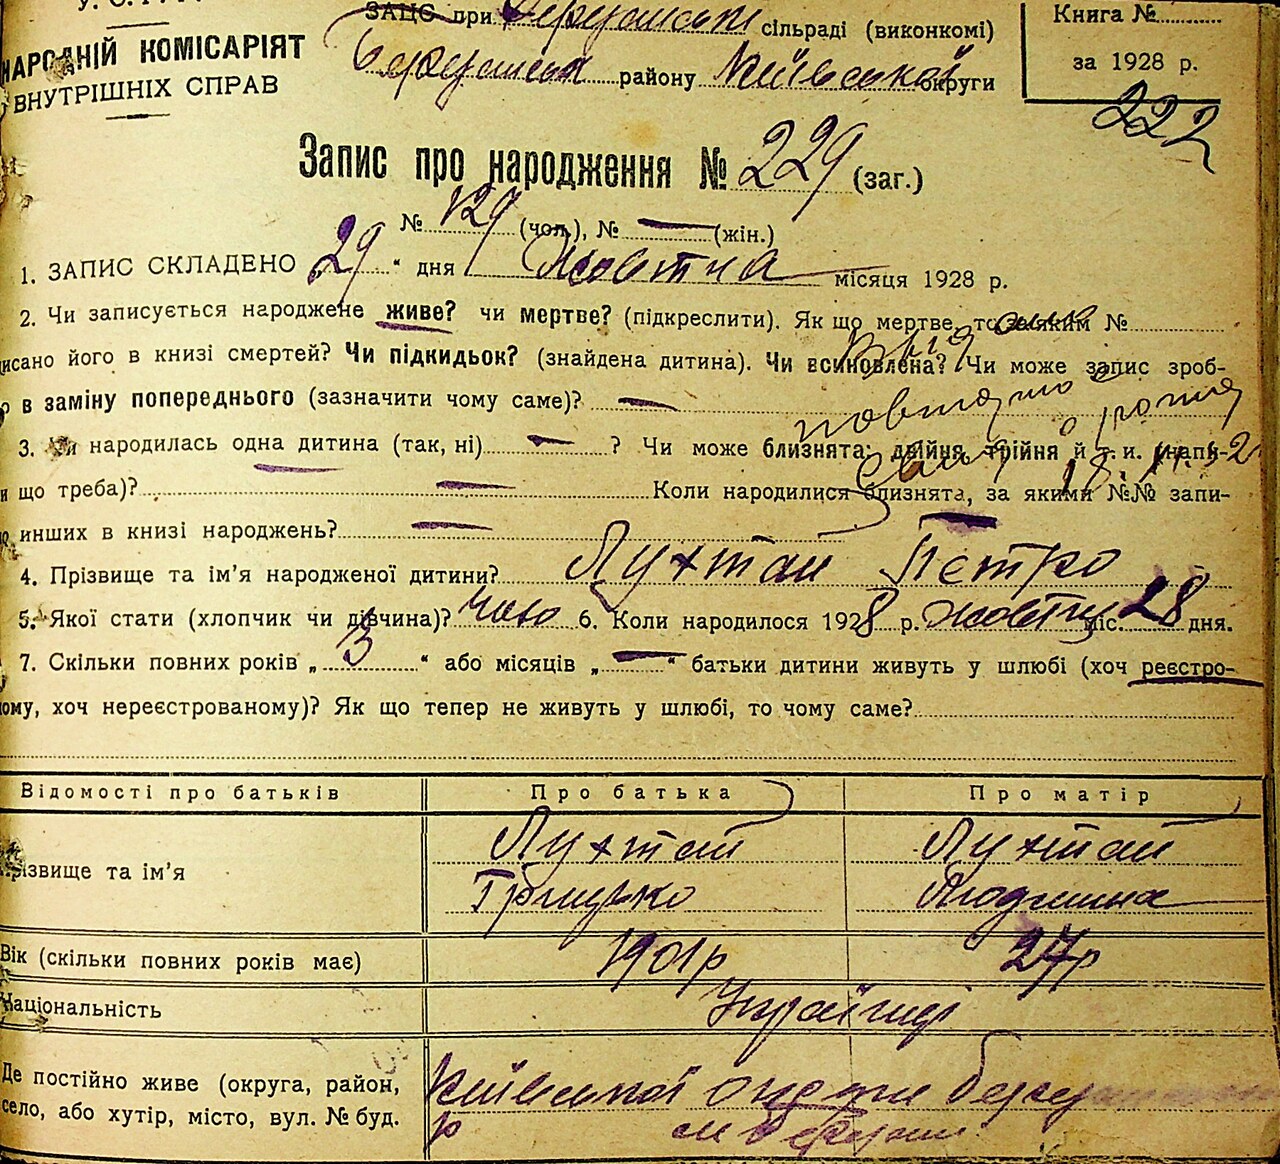 ЗАЦС при сільраді (виконкомі)
Книга №
НАРОДНІЙ КОМІСАРІЯТ
району Київської округи
за 1928 р.
ВНУТРІШНІХ СПРАВ
222
Запис про народження № 229 (заг.)
№ 129 (чол.), № — (жін.)
1. ЗАПИС СКЛАДЕНО 29 " дня Жовтня місяця 1928 р.
2. Чи записується народжене живе? чи мертве? (підкреслити). Як що мертве, то за яким №
писано його в книзі смертей? Чи підкидьок? (знайдена дитина). Чи всиновлена? Чи може запис зроб-
в заміну попереднього (зазначити чому саме)? —
3. Чи народилась одна дитина (так, ні) — ? Чи може близнята: двійня, трійня й т. и. (напи-
и що треба)? — Коли народилися близнята, за якими №№ запи-
инших в книзі народжень? —
4. Прізвище та ім'я народженої дитини? Лухтай Петро
5. Якої стати (хлопчик чи дівчина)? чоло 6. Коли народилося 1928 р. жовтня міс. 28 дня.
7. Скільки повних років „ 3 " або місяців „ — " батьки дитини живуть у шлюбі (хоч реєстро-
ому, хоч нереєстрованому)? Як що тепер не живуть у шлюбі, то чому саме?
Відомості про батьків Про батька Про матір
Прізвище та ім'я
Лухтай Лухтай
Грицько Людмина
Вік (скільки повних років має) 1901р 27р
Національність Українці
Де постійно живе (округа, район, Київської округи
село, або хутір, місто, вул. № буд. р м